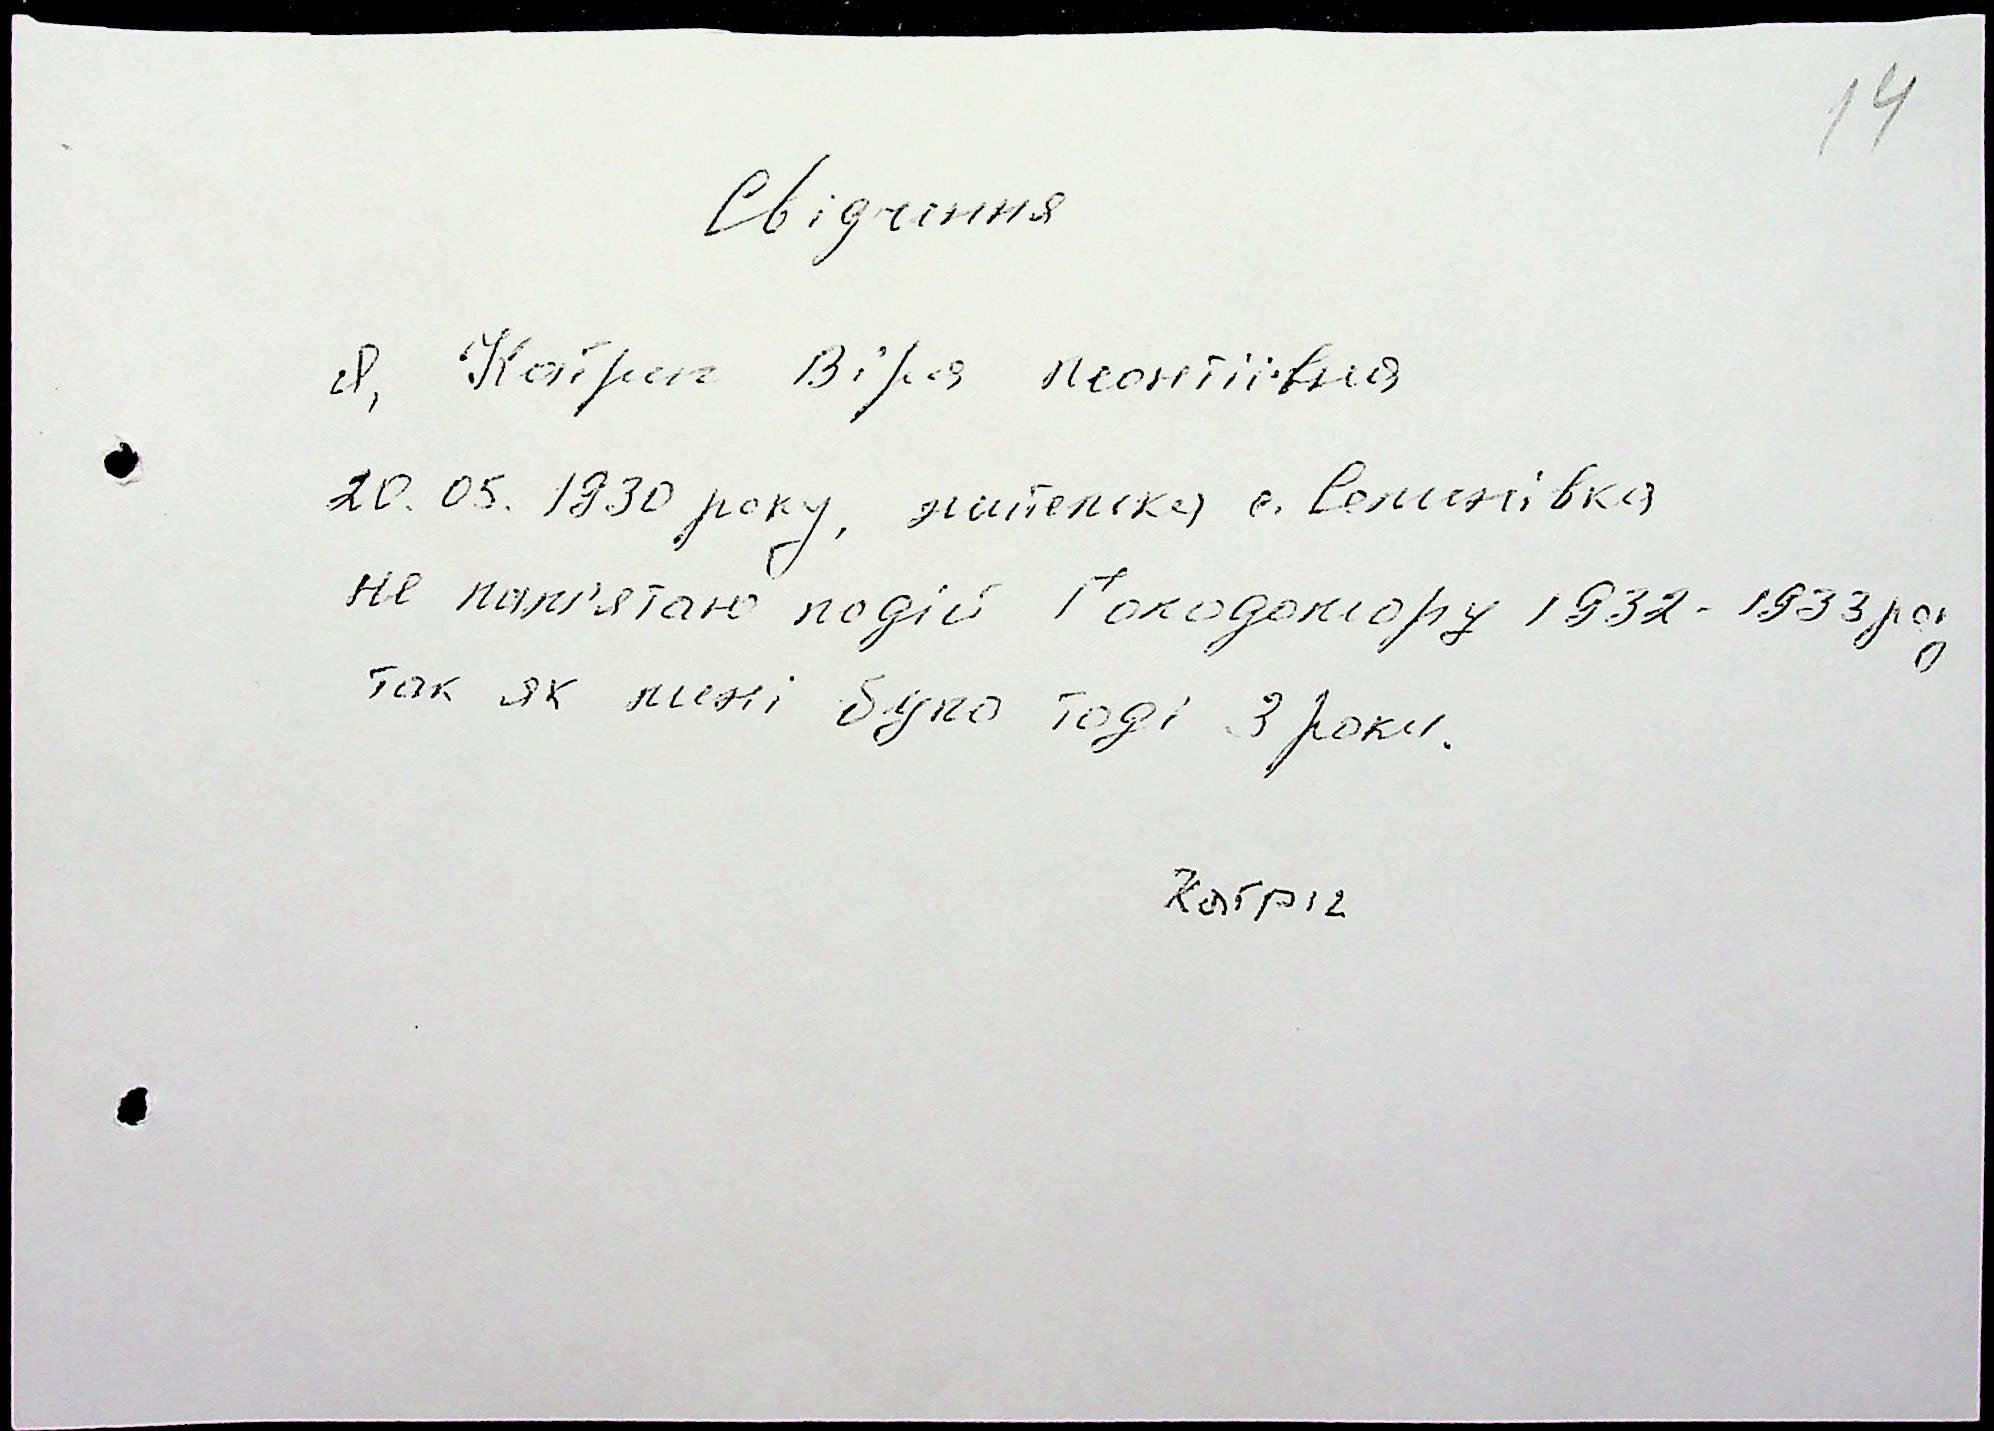 14
Свідчення
Я, Катріч Віра Леонтіївна
20.05.1930 року, жителька с.
не пам'ятаю подій Голодомору 1932-1933 рок
так як мені було тоді 3 роки.